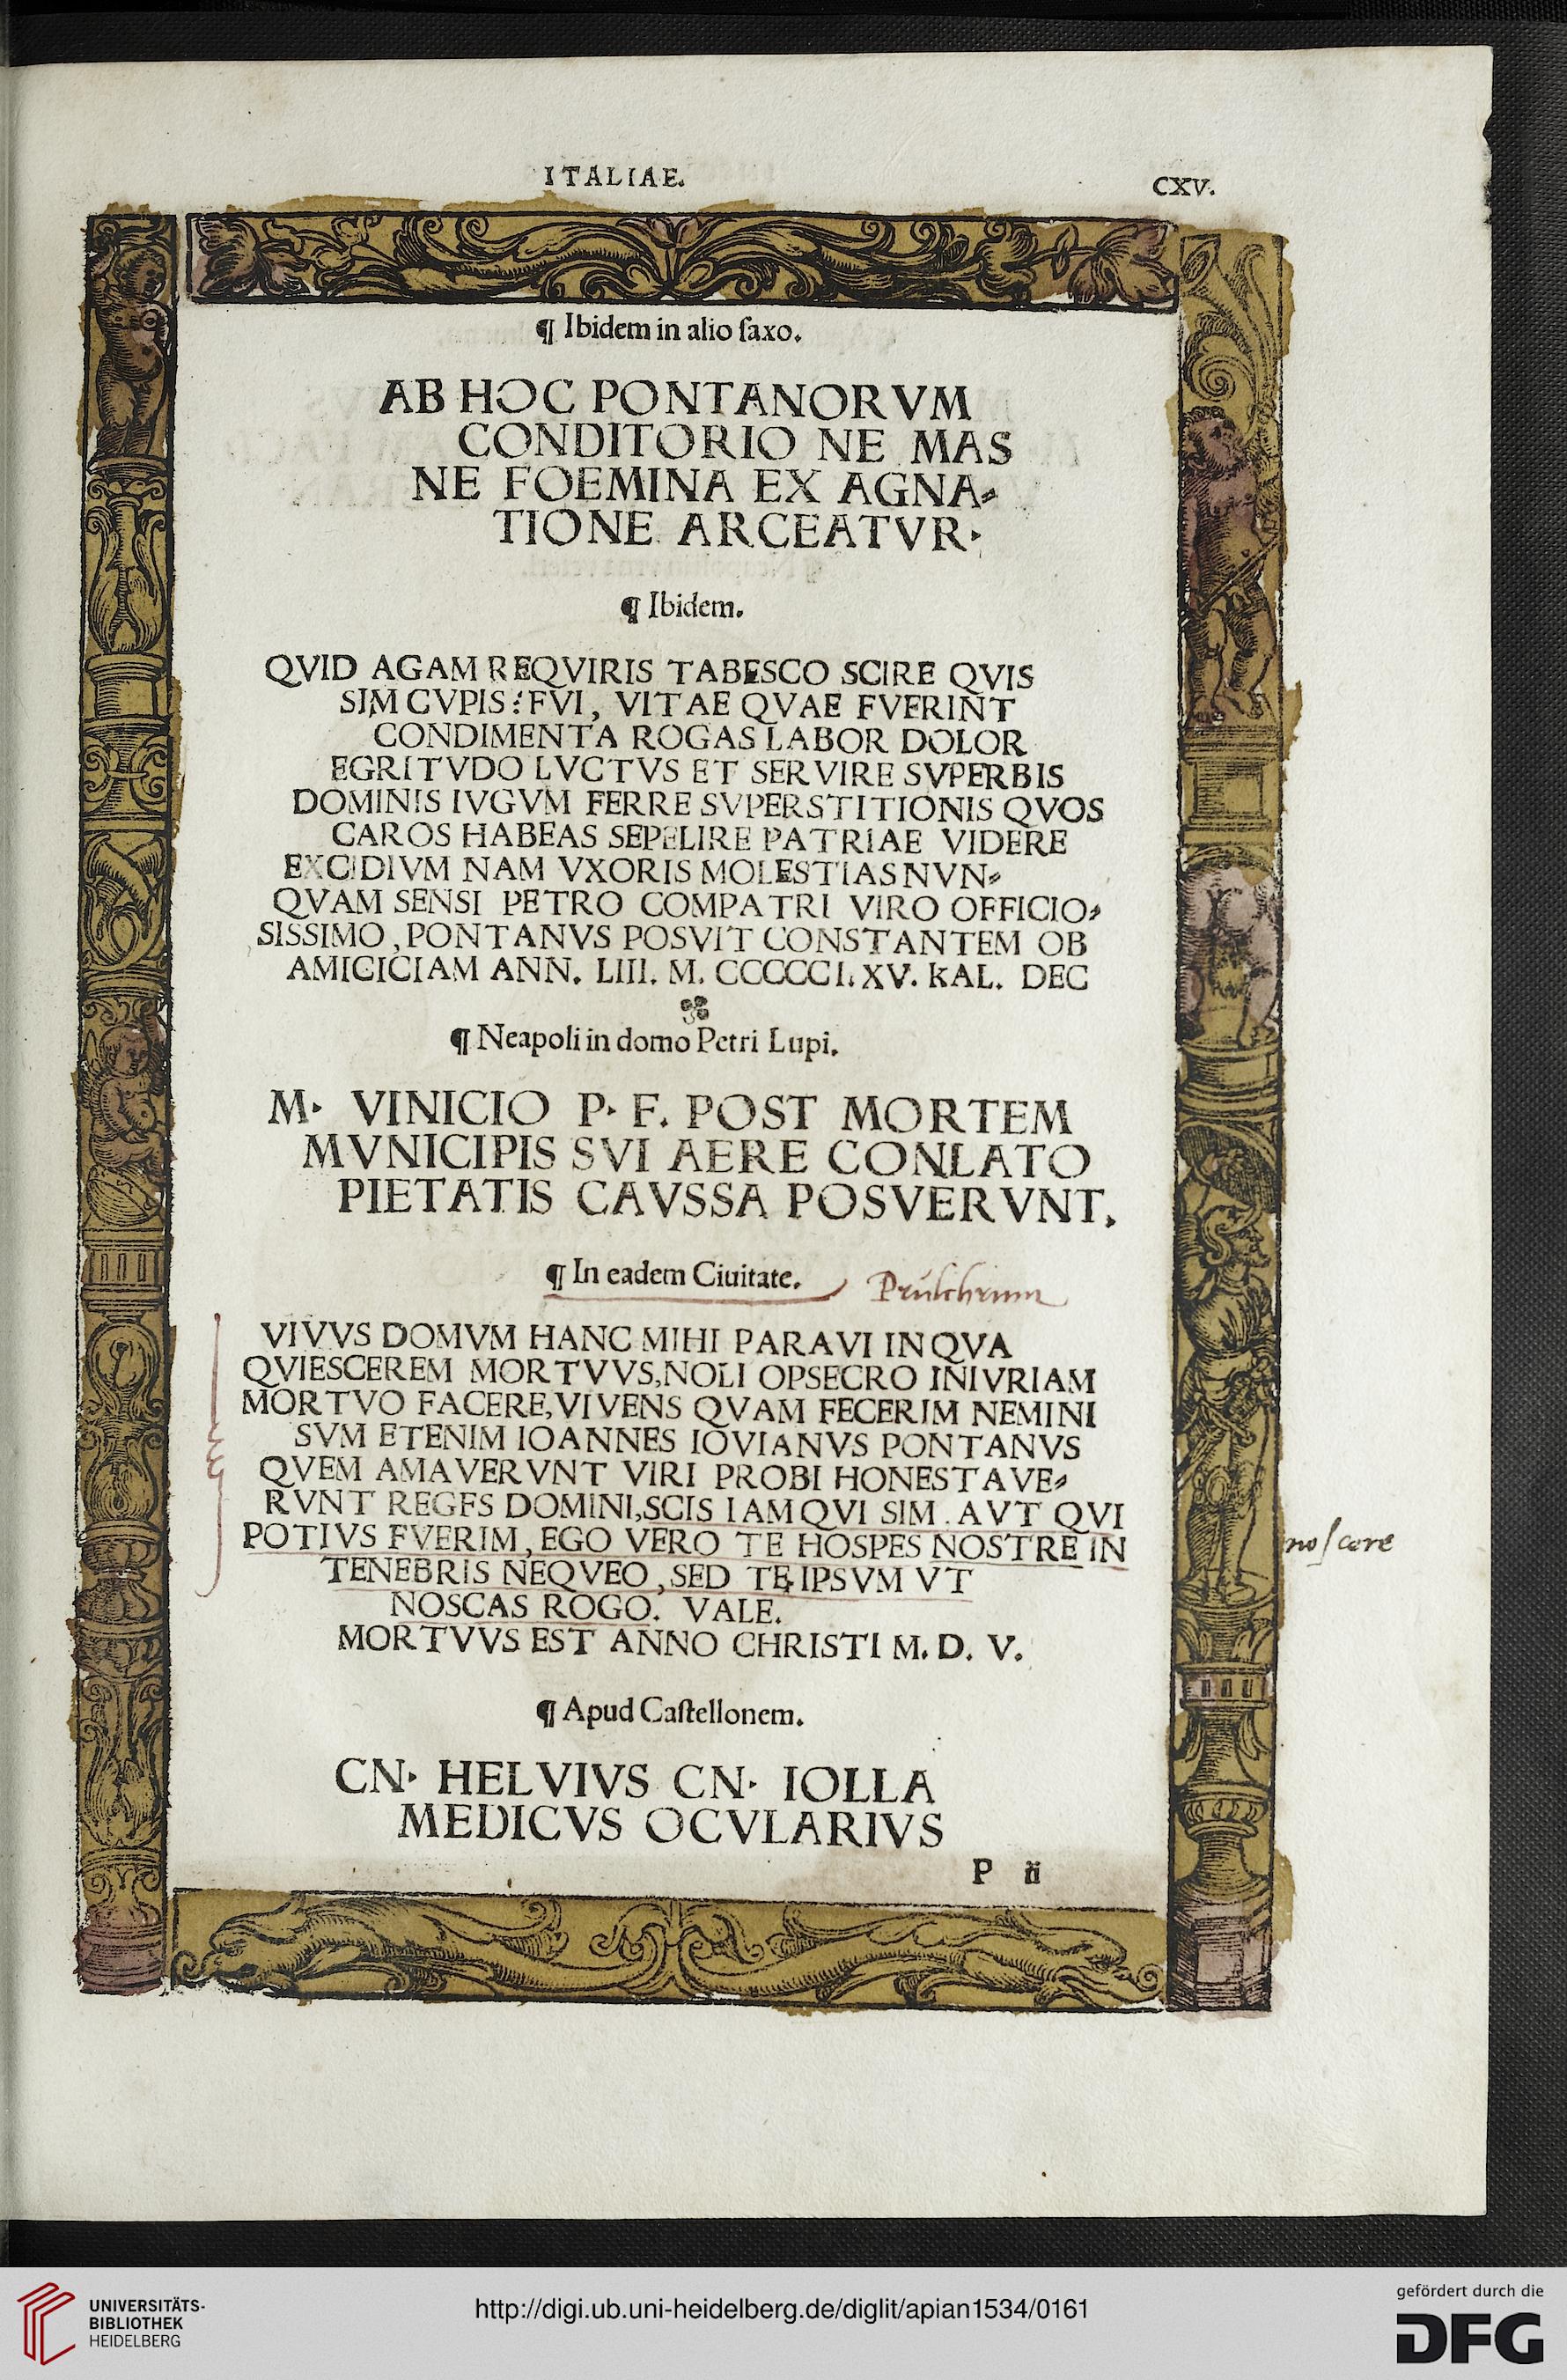 ITALIAE.
CXV.
¶ Ibidem in alio ſaxo.
AB HOC PONTANORVM
CONDITORIO NE MAS
NE FOEMINA EX AGNA⸗
TIONE ARCEATVR.
¶ Ibidem.
QVID AGAM REQVIRIS TABESCO SCIRE QVIS
SIM CVPIS: FVI, VITAE QVAE FVERINT
CONDIMENTA ROGAS LABOR DOLOR
EGRITVDO LVCTVS ET SERVIRE SVPERBIS
DOMINIS IVGVM FERRE SVPERSTITIONIS QVOS
CAROS HABEAS SEPELIRE PATRIAE VIDERE
EXCIDIVM NAM VXORIS MOLESTIAS NVN⸗
QVAM SENSI PETRO COMPATRI VIRO OFFICIO⸗
SISSIMO, PONTANVS POSVIT CONSTANTEM OB
AMICICIAM ANN. LIII. M. CCCCCI. XV. KAL. DEC
¶ Neapoli in domo Petri Lupi.
M. VINICIO P. F. POST MORTEM
MVNICIPIS SVI AERE CONLATO
PIETATIS CAVSSA POSVERVNT.
¶ In eadem Ciuitate.
Prulchrum
VIVVS DOMVM HANC MIHI PARAVI IN QVA
QVIESCEREM MORTVVS, NOLI OPSECRO INIVRIAM
MORTVO FACERE, VIVENS QVAM FECERIM NEMINI
SVM ETENIM IOANNES IOVIANVS PONTANVS
QVEM AMAVERVNT VIRI PROBI HONESTAVE⸗
RVNT REGES DOMINI, SCIS IAM QVI SIM. AVT QVI
POTIVS FVERIM, EGO VERO TE HOSPES NOSTRE IN
noſcere
TENEBRIS NEQVEO, SED TE IPSVM VT
NOSCAS ROGO. VALE.
MORTVVS EST ANNO CHRISTI M. D. V.
¶ Apud Caſtellonem.
CN. HELVIVS CN. IOLLA
MEDICVS OCVLARIVS
P ii
UNIVERSITÄTS-
BIBLIOTHEK
HEIDELBERG
http://digi.ub.uni-heidelberg.de/diglit/apian1534/0161
gefördert durch die
DFG